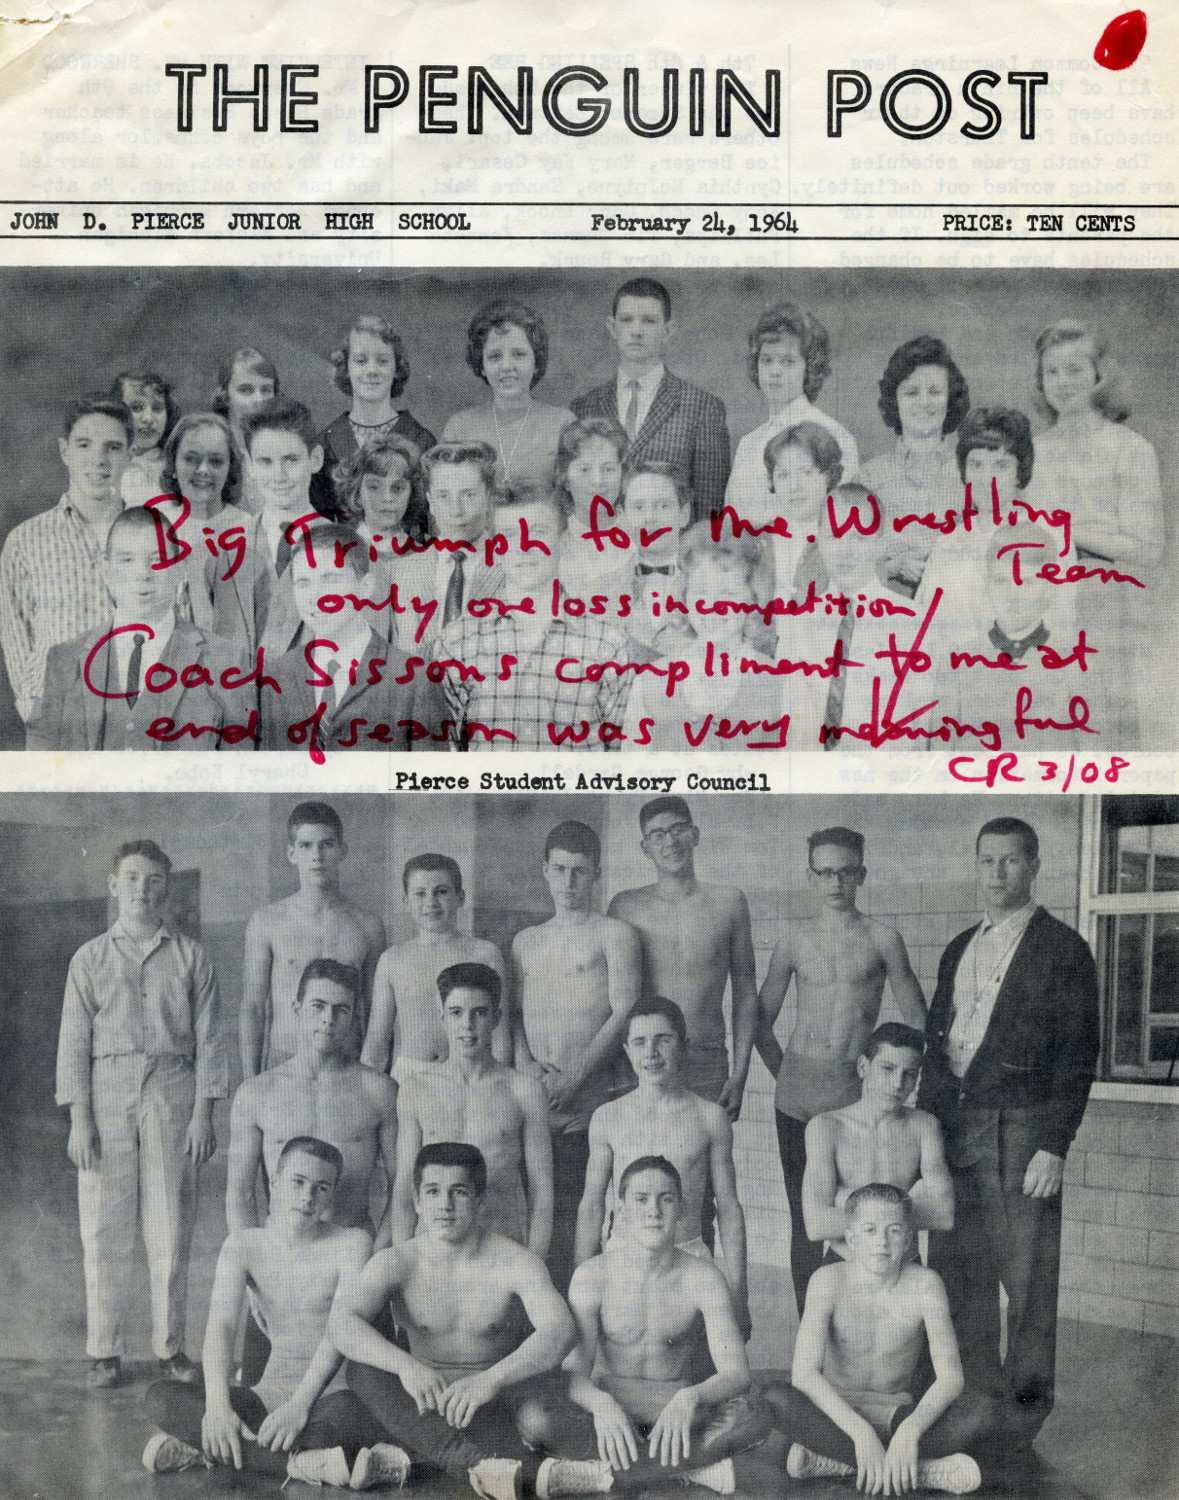 THE PENGUIN POST
JOHN D. PIERCE JUNIOR HIGH SCHOOL February 24, 1964 PRICE: TEN CENTS
Big Triumph for me. Wrestling
Team
only one loss in competition
Coach Sissons compliment to me at
end of season was very meaningful
CR 3/08
Pierce Student Advisory Council